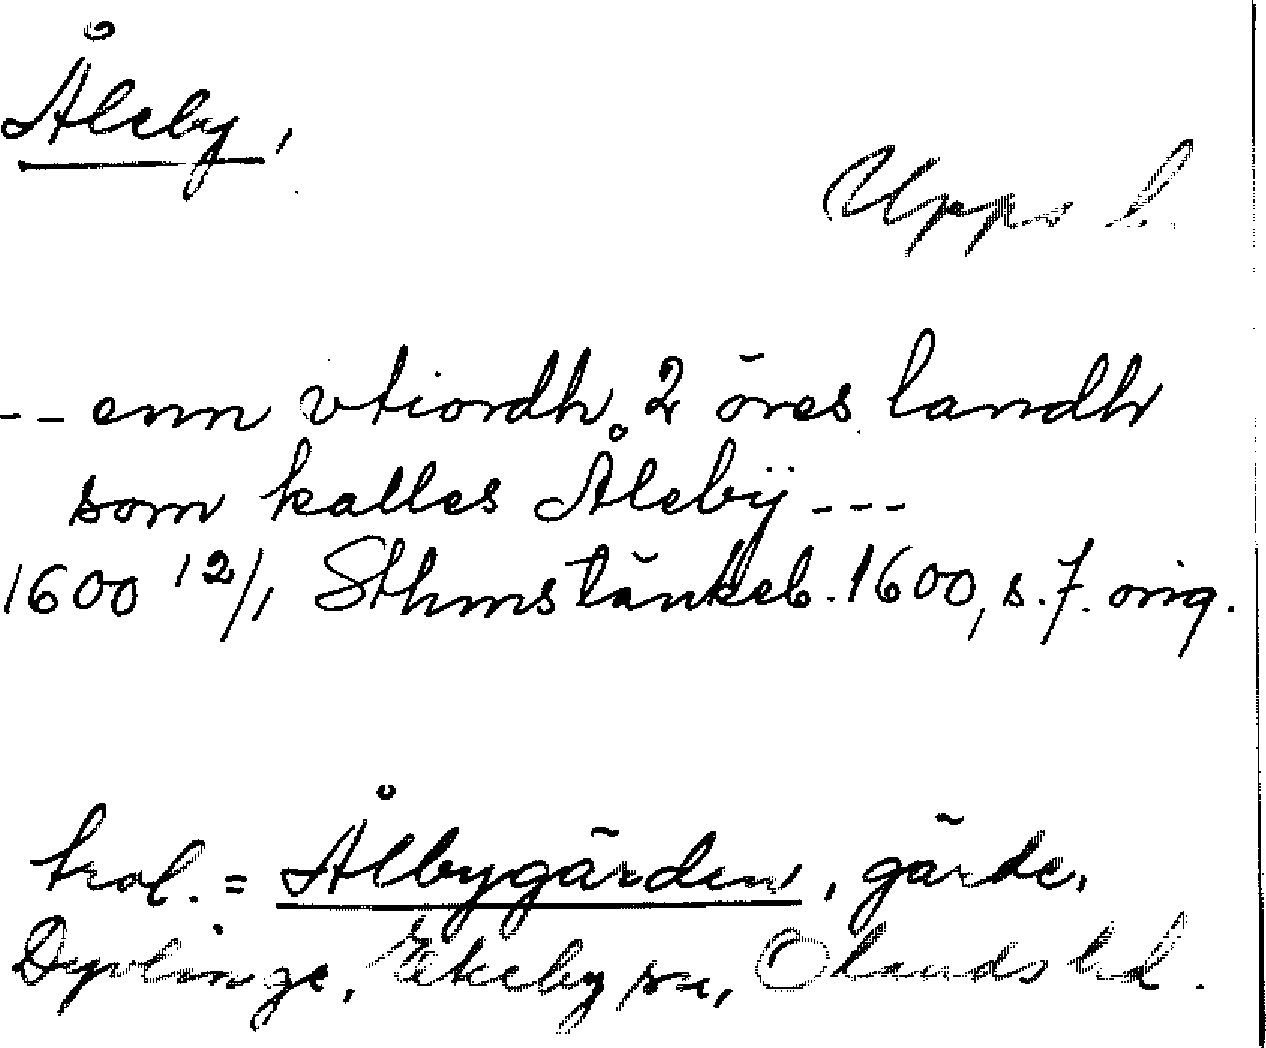 Åleby,
Upps l.
-- enn vtiordh 2 öres landh
som kalles Ålebÿ ---
1600 12/1 Sthms tänkeb. 1600, s. 7. orig.
trol. = Ålbygärden, gärde,
Dyvlinge, Ekeby sn, Olands hd.